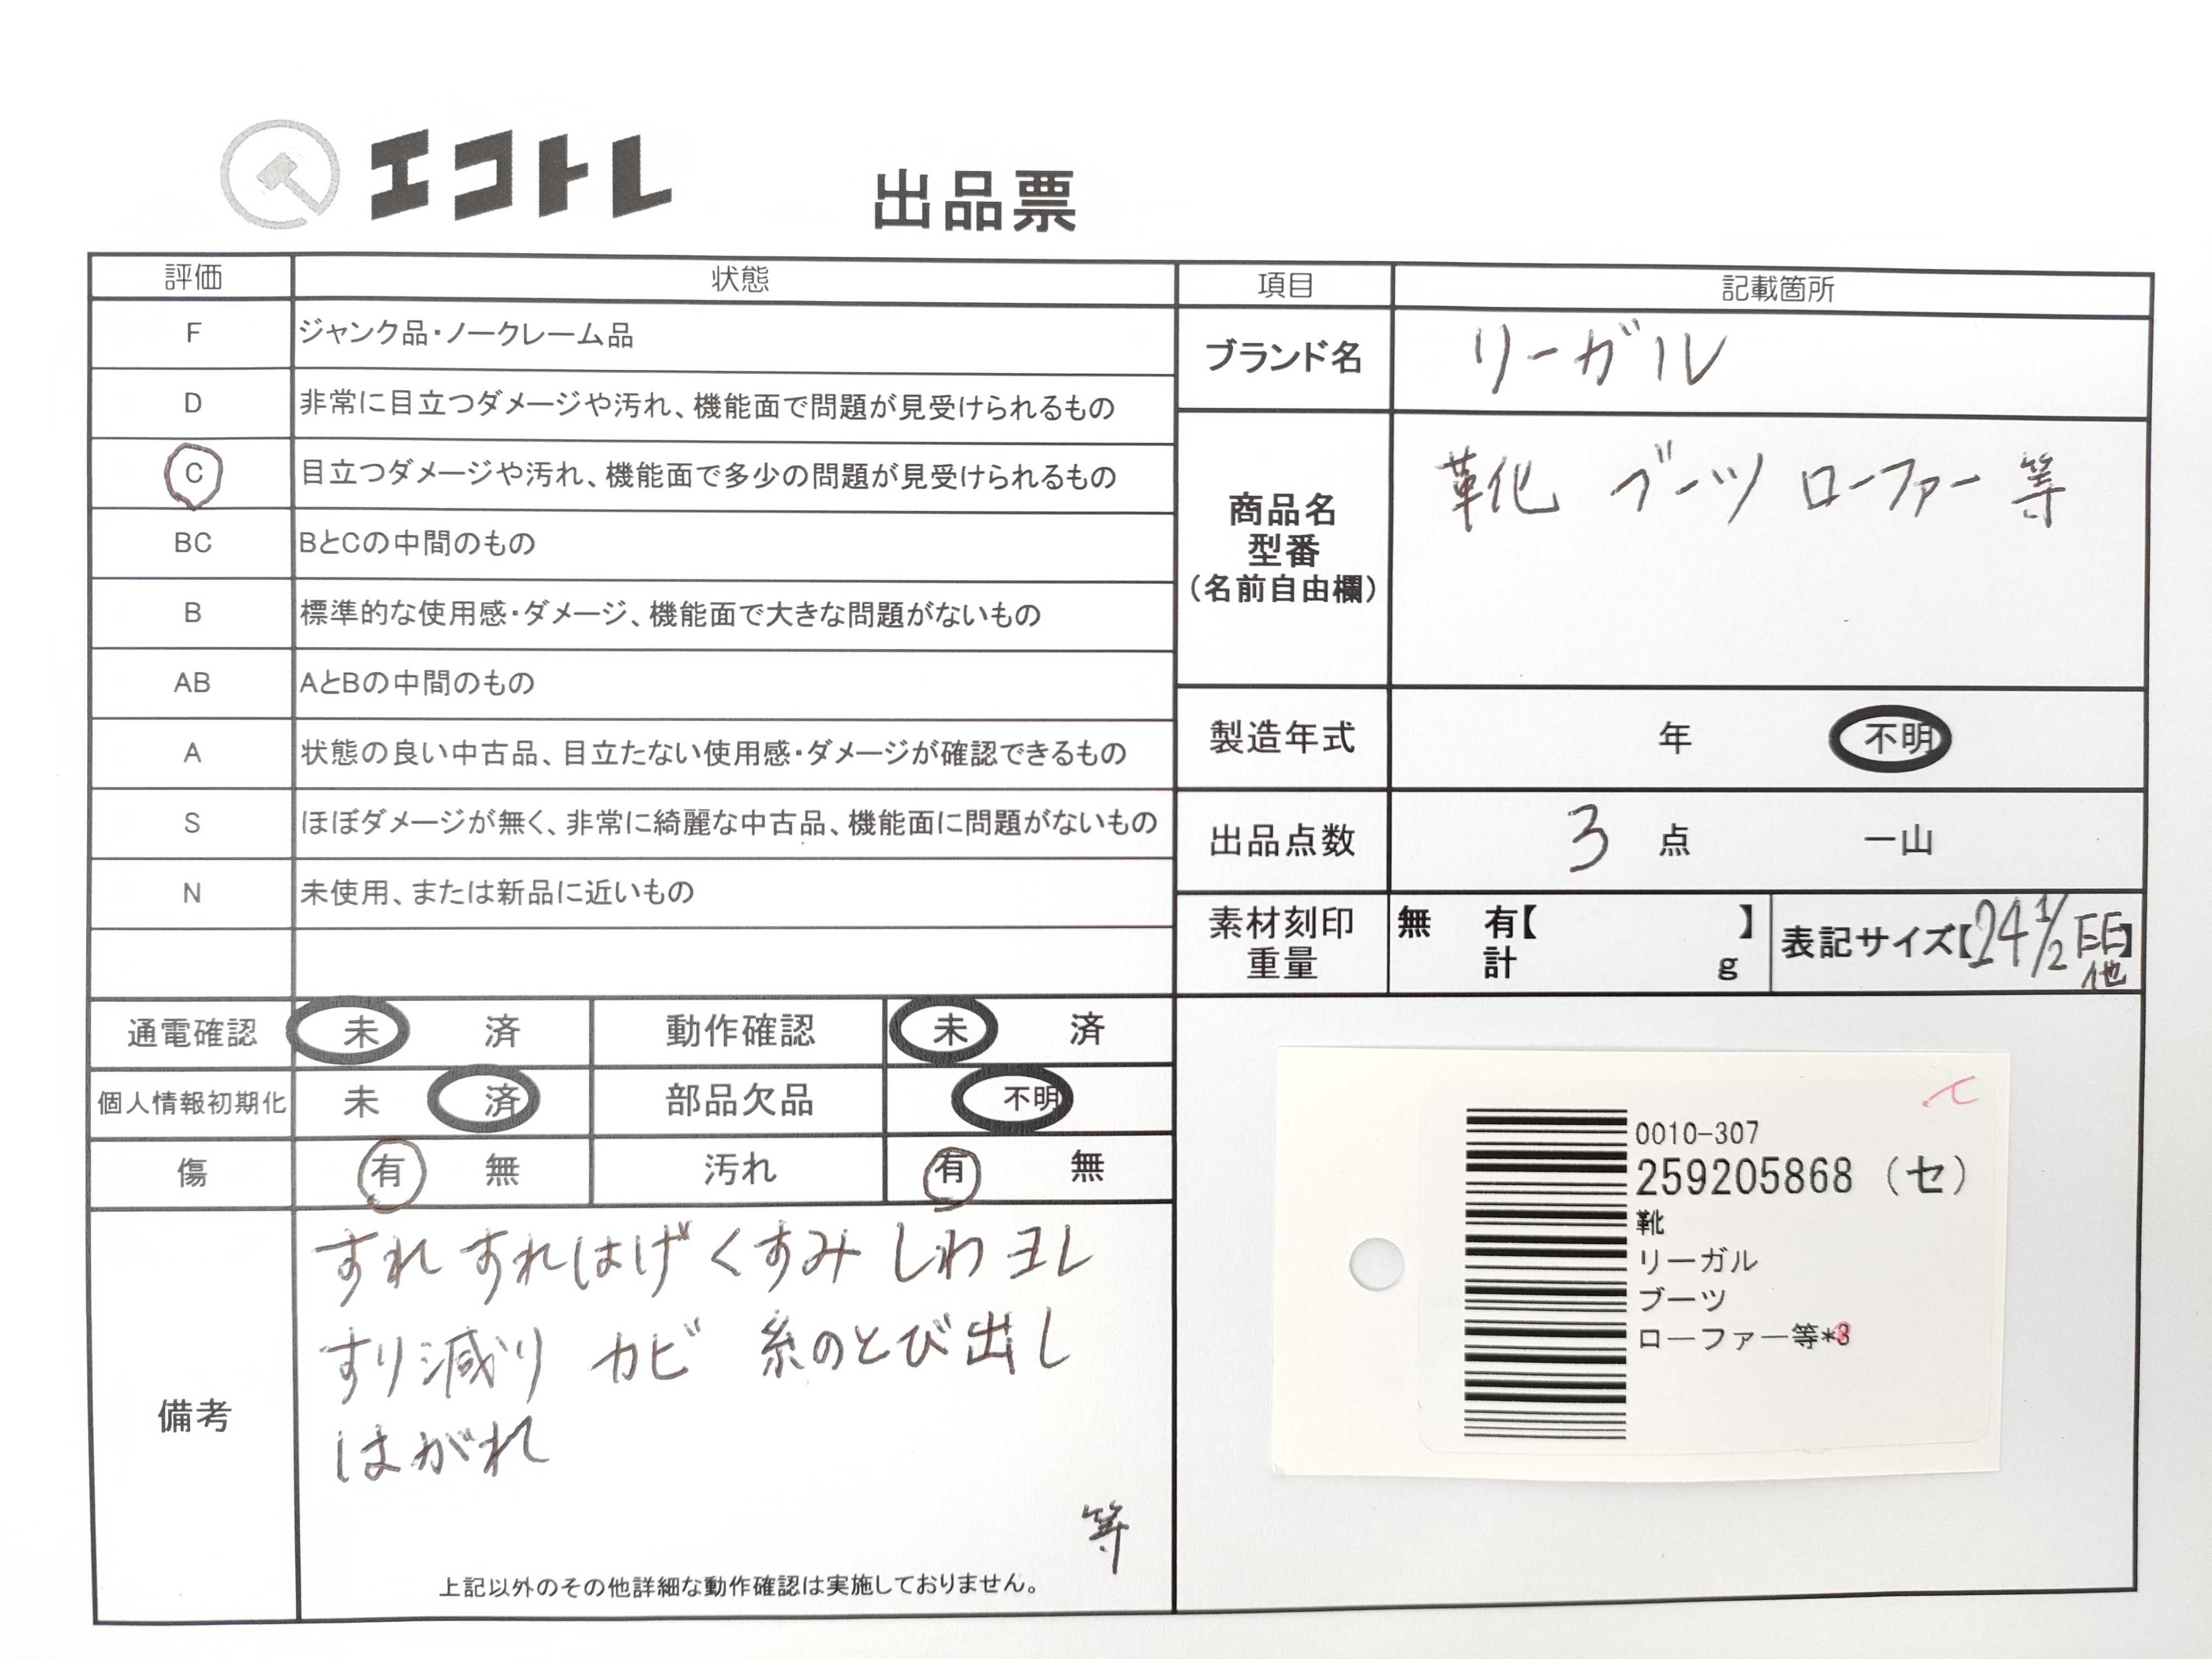 エコトレ 出品票
評価 状態
F ジャンク品・ノークレーム品
D 非常に目立つダメージや汚れ、機能面で問題が見受けられるもの
C 目立つダメージや汚れ、機能面で多少の問題が見受けられるもの
BC BとCの中間のもの
B 標準的な使用感・ダメージ、機能面で大きな問題がないもの
AB AとBの中間のもの
A 状態の良い中古品、目立たない使用感・ダメージが確認できるもの
S ほぼダメージが無く、非常に綺麗な中古品、機能面に問題がないもの
N 未使用、または新品に近いもの
項目 記載箇所
ブランド名 リーガル
商品名
型番
(名前自由欄)
靴 ブーツ ローファー 等
製造年式 年 不明
出品点数 3 点 一山
素材刻印 無 有【 】
重量 計 g
表記サイズ【24 1/2 EE】
他
通電確認 未 済 動作確認 未 済
個人情報初期化 未 済 部品欠品 不明
傷 有 無 汚れ 有 無
備考
すれ すれはげ くすみ しわ ヨレ
すり減り カビ 糸のとび出し
はがれ
等
上記以外のその他詳細な動作確認は実施しておりません。
0010-307
259205868 (セ)
靴
リーガル
ブーツ
ローファー等*3